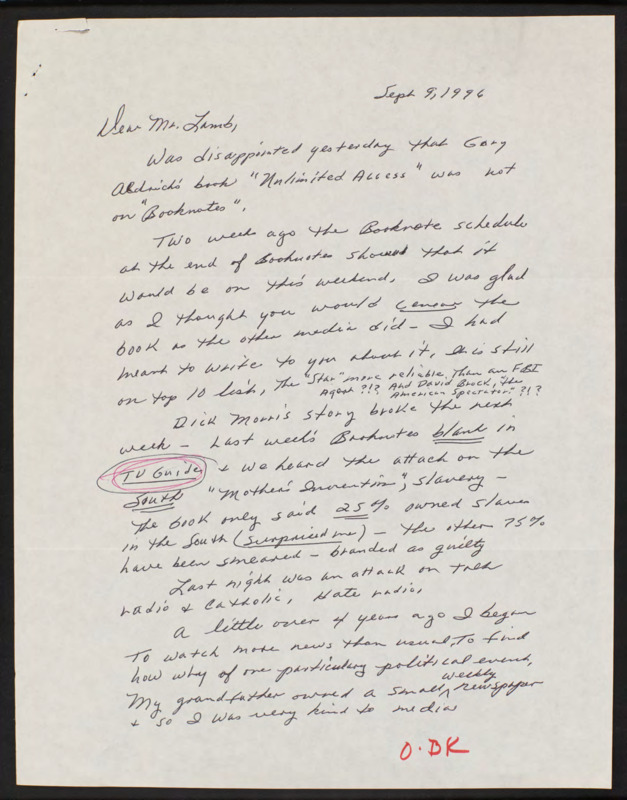 Sept 9, 1996
Dear Mr. Lamb,
Was disappointed yesterday that Gary
Aldrich's book "Unlimited Access" was not
on "Booknotes".
Two weeks ago the Booknote schedule
at the end of Booknotes showed that it
would be on this weekend. I was glad
as I thought you would censor the
book as the other media did - I had
meant to write to you about it. It is still
on top 10 list, The "Star" more reliable than an FBI
Agent?!? And David Brock, the
American Spectator?!?
Dick Morris story broke the next
week - Last week's Booknotes blank in
TV Guide & we heard the attack on the
South "Mother's Invention", slavery -
The book only said 25% owned slaves
in the South (surprised me) - the other 75%
have been smeared - branded as guilty
Last night was an attack on talk
radio & Catholic, Hate radio.
A little over 4 years ago I began
To watch more news than usual, To find
how why of one particular political event,
My grandfather owned a small, weekly newspaper
& so I was very kind to media
O.BK